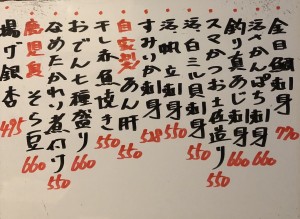 金目鯛刺身 770
活さかんぱち刺身 660
釣り真あじ刺身 660
スマかつお土佐造り 550
活白ミル貝刺身
活帆立刺身 550
すみいか刺身 528
自家製あん肝 550
干し赤魚焼き 550
おでん七種盛り 660
なめたかれい煮付け 550
鹿児島そら豆 660
揚げ銀杏 495